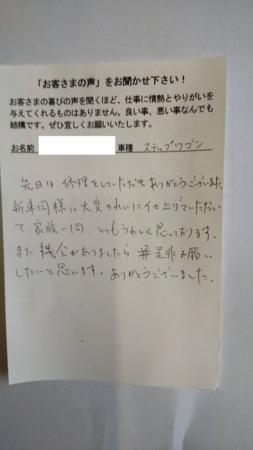 「お客さまの声」をお聞かせ下さい!
お客さまの喜びの声を聞くほど、仕事に情熱とやりがいを
与えてくれるものはありません。良い事、悪い事なんでも
結構です。ぜひ宜しくお願いいたします。
お名前 車種 ステップワゴン
先日は修理をしていただきありがとうございました。
新車同様に大変きれいに仕上げていただい
て、家族一同、とてもうれしく思っております。
また機会がありましたら是非お願い
したいと思います。ありがとうございました。